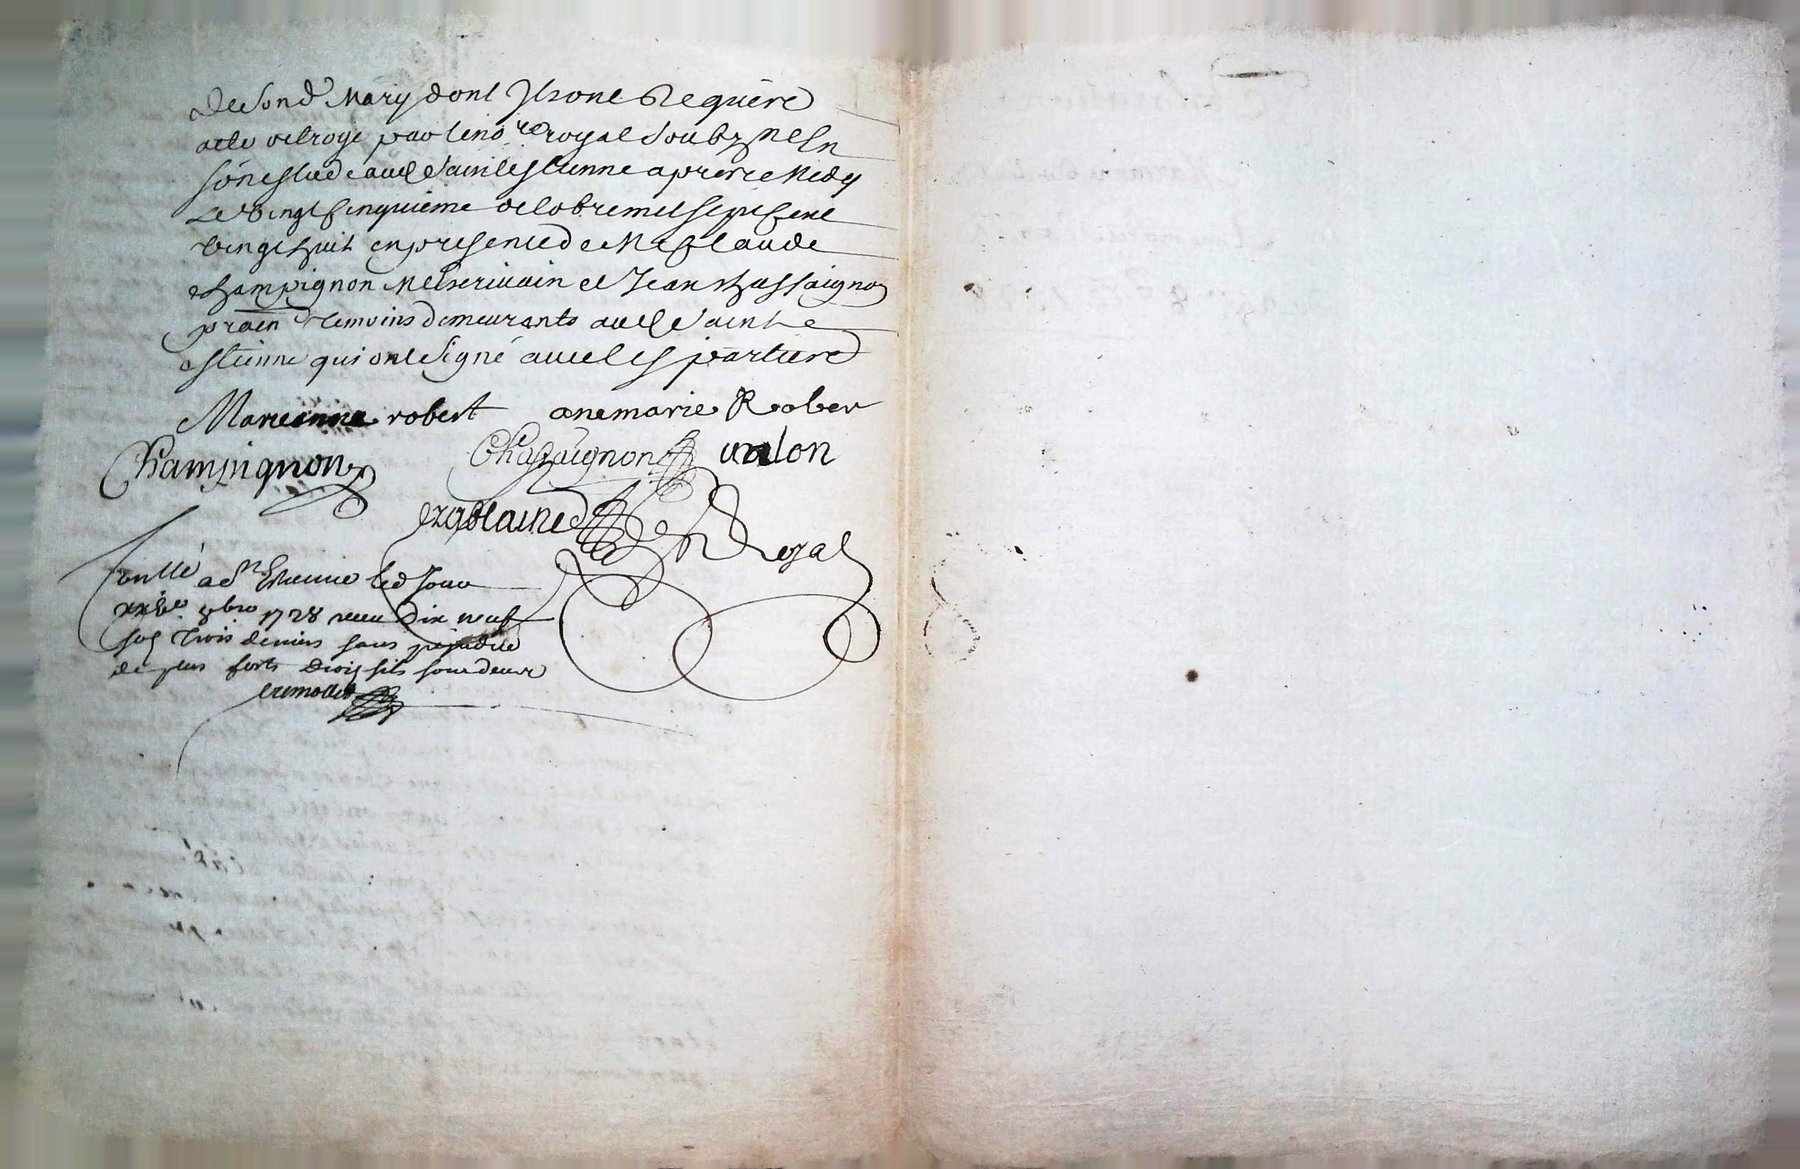 de son d mary dont Ils ont Requere
acte octroyé par le no re royal soubz ne En
son estude aud Saint Estienne apres Midy
Le vingt cinquieme octobre mil sept cent
vingt huit en presence de Me Claude
Champignon Me Escrivain et Jean Chassaignon
praen temoins demeurants aud Saint
Estienne qui ont signé avec les parties
Marieanne robert anemarie Rober
Champignon Chassaignon
Royal
Conllé a St Etienne led Jour
xxve 8bre 1728 receu Dix neuf
sols Trois deniers sans prejudice
de plus forts droits sils sont deus